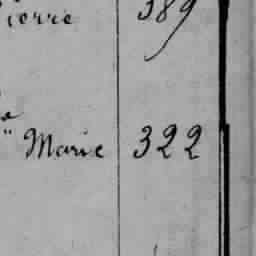 Pierre 389
" Marie 322